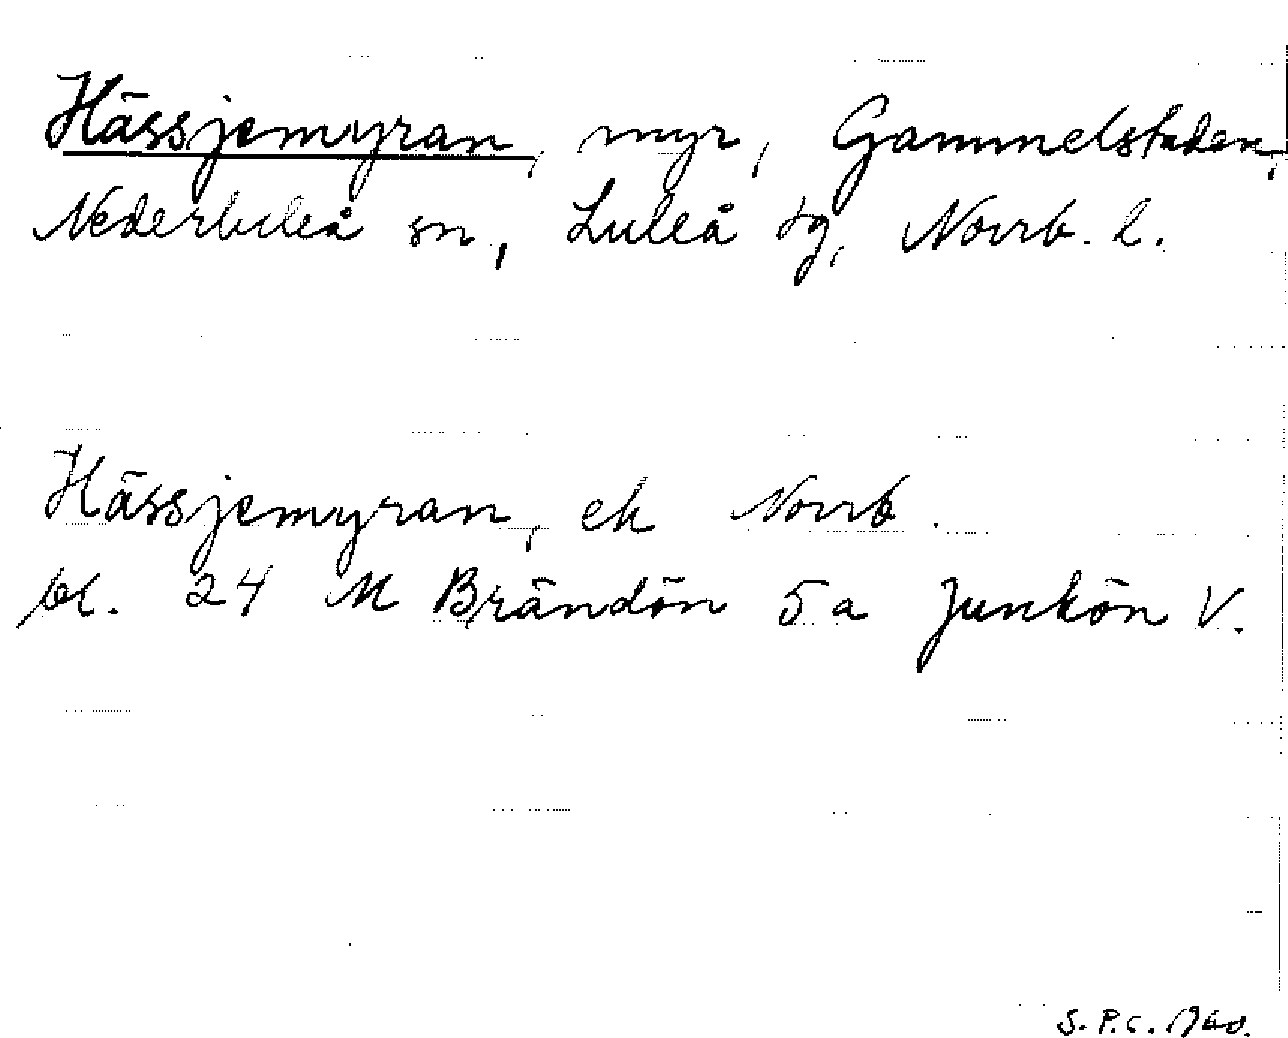 Hässjemyran, myr, Gammelstaden,
Nederluleå sn, Luleå tg, Norrb. l.
Hässjemyran, ek Norrb.
bl. 24 M Brändön 5 a Junkön V.
S. P. C. 1960.